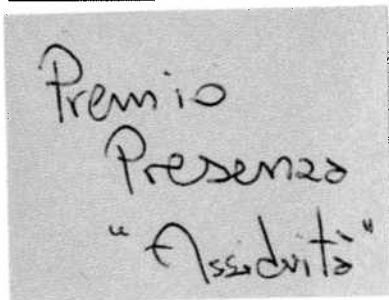 Premio
Presenza
"Assiduità"